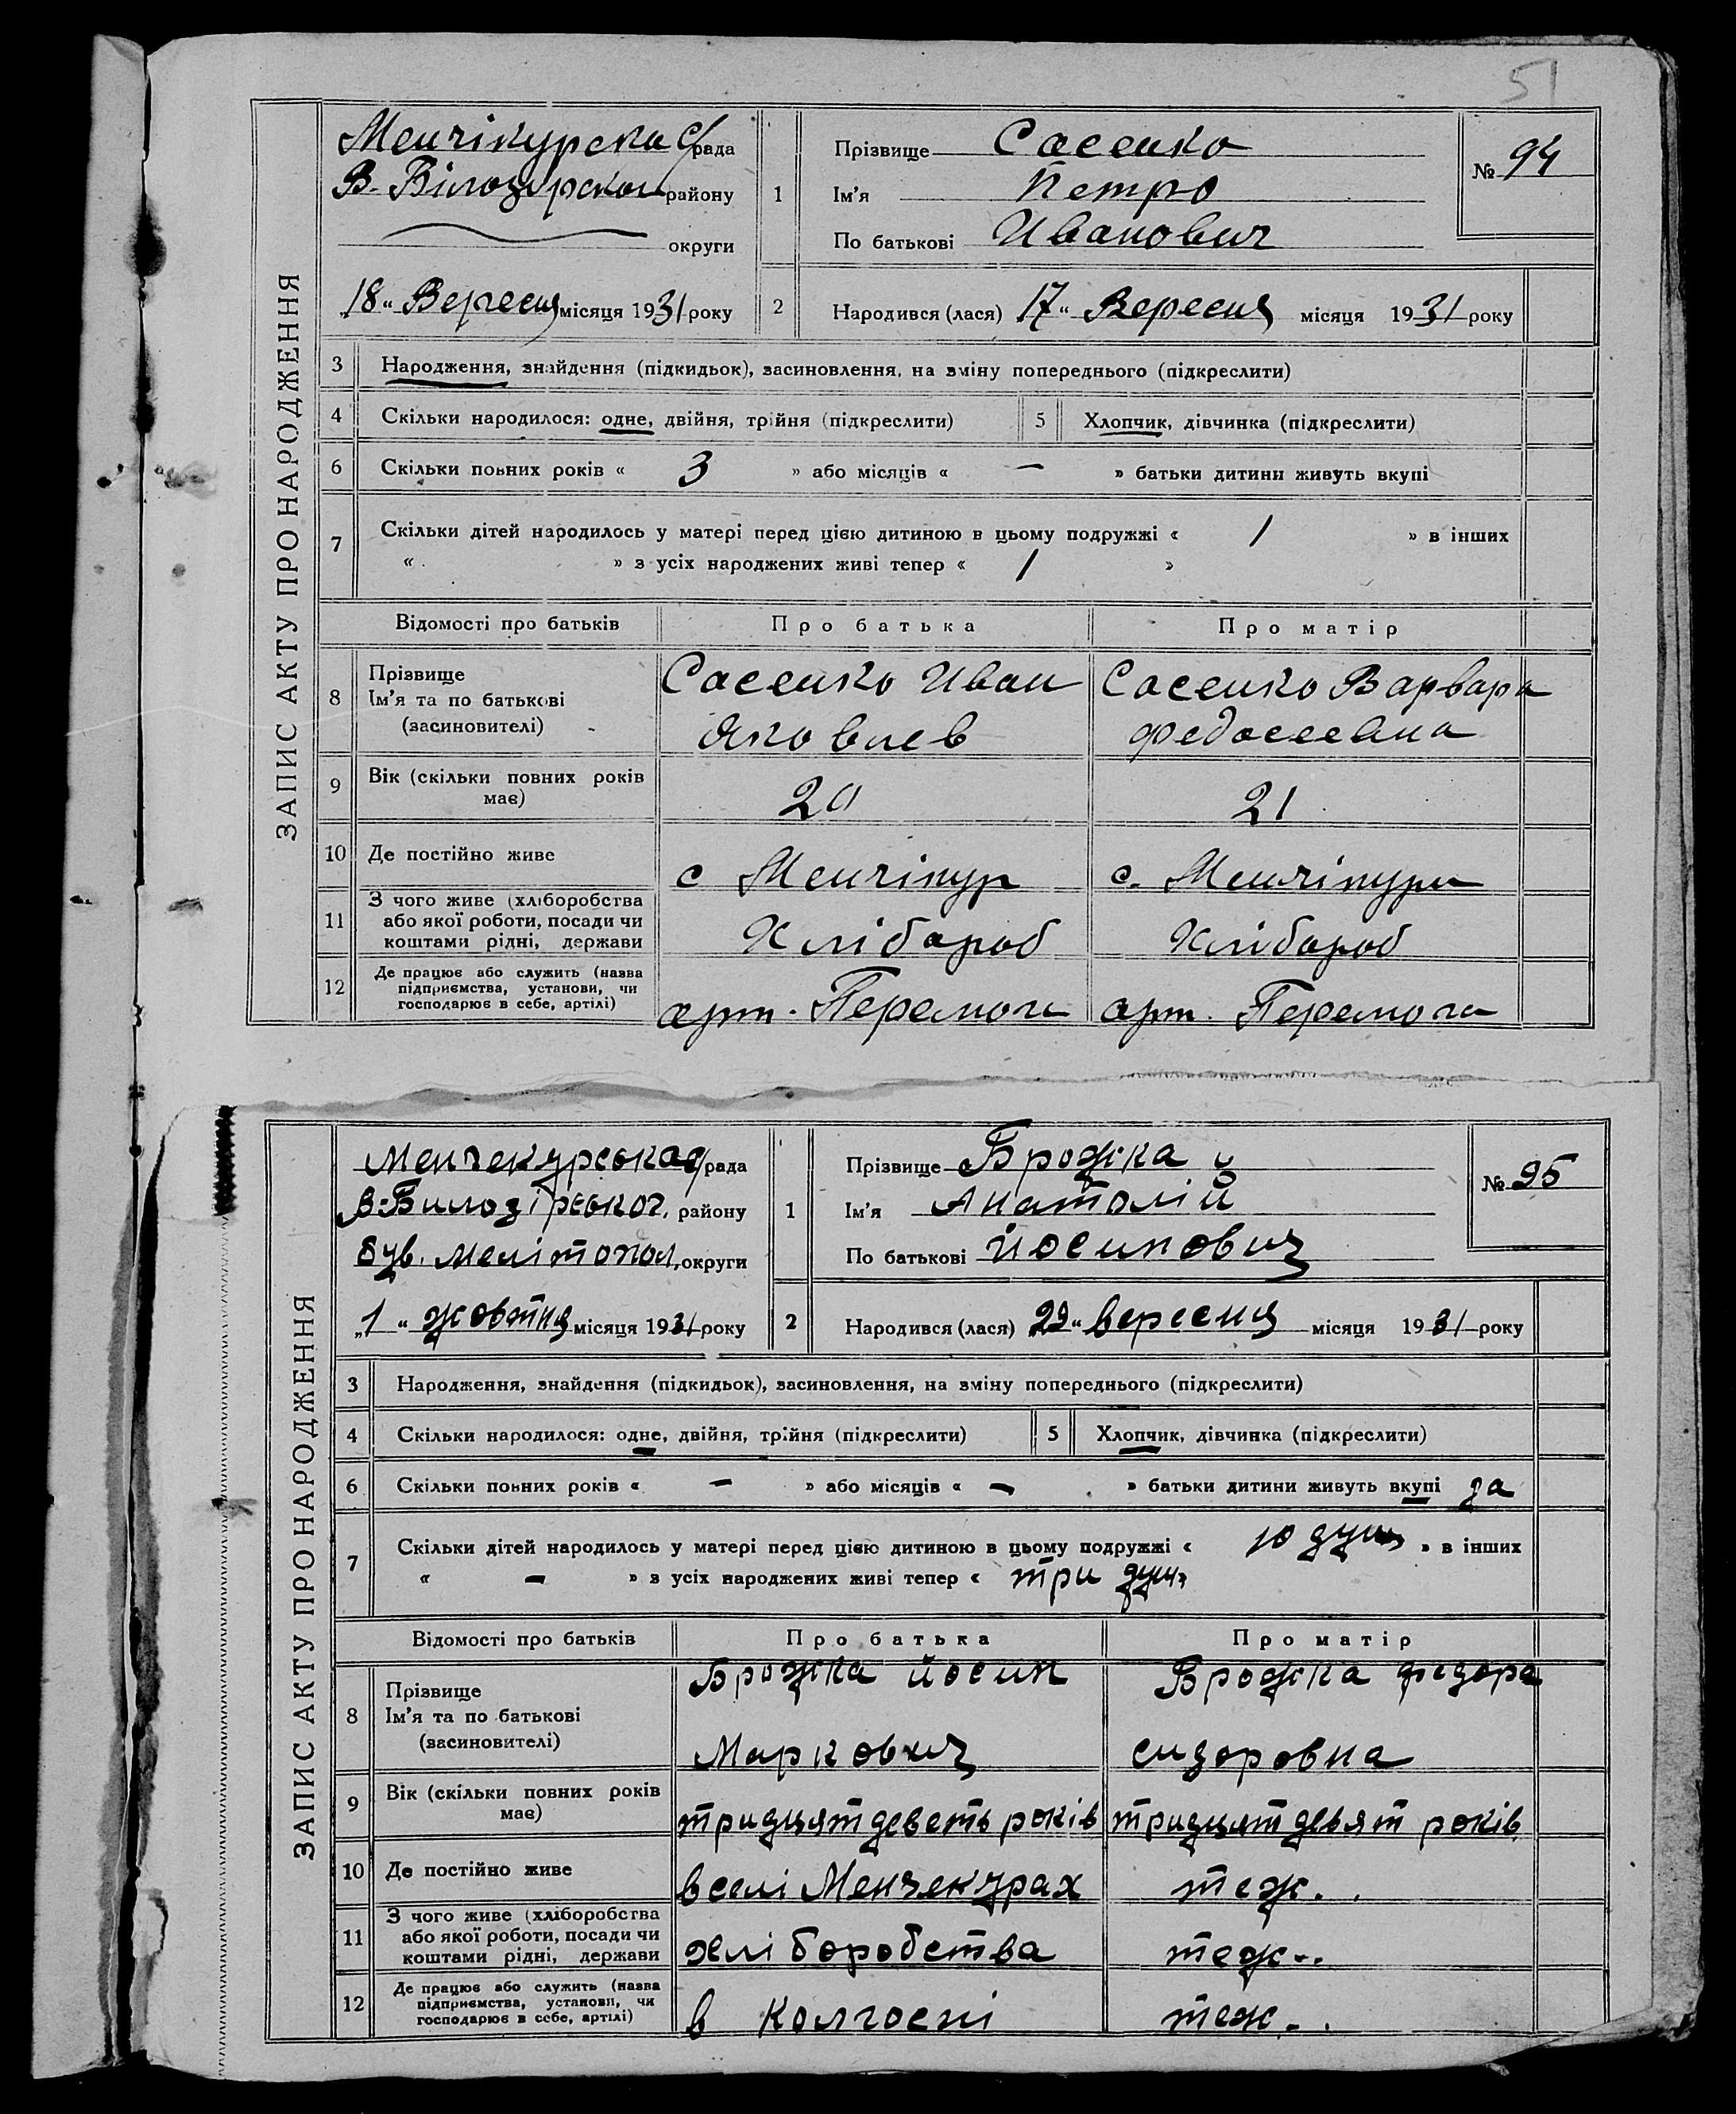 51
ЗАПИС АКТУ ПРО НАРОДЖЕННЯ
Менчікурска с/рада
В-Білозерского району
округи
"18" Вересня місяця 1931 року
1
Прізвище Сасенко
Ім'я Петро
По батькові Иванович
№ 94
2
Народився (лася) 17 " Вересня місяця 1931 року
3 Народження, знайдення (підкидьок), засиновлення, на зміну попереднього (підкреслити)
4 Скільки народилося: одне, двійня, трійня (підкреслити) 5 Хлопчик, дівчинка (підкреслити)
6 Скільки повних років « 3 » або місяців « — » батьки дитини живуть вкупі
7 Скільки дітей народилось у матері перед цією дитиною в цьому подружжі « 1 » в інших
« » з усіх народжених живі тепер « 1 »
Відомості про батьків Про батька Про матір
8 Прізвище
Ім'я та по батькові
(засиновителі)
Сасенко Иван
Яковлев
Сасенко Варвара
Федасеевна
9 Вік (скільки повних років
має)
20 21
10 Де постійно живе с Менчікур с. Менчікури
11 З чого живе (хліборобства
або якої роботи, посади чи
коштами рідні, держави
Хлібароб Хлібароб
12 Де працює або служить (назва
підприємства, установи, чи
господарює в себе, артілі)
арт. Перемога арт. Перемога
ЗАПИС АКТУ ПРО НАРОДЖЕННЯ
Менчекурська с/рада
В-Билозірськог. району
був. Мелітопол. округи
"1" жовтня місяця 1931 року
1
Прізвище Брожка
Ім'я Анатолій
По батькові Йосипович
№ 95
2
Народився (лася) 29 " вересня місяця 1931 року
3 Народження, знайдення (підкидьок), засиновлення, на зміну попереднього (підкреслити)
4 Скільки народилося: одне, двійня, трійня (підкреслити) 5 Хлопчик, дівчинка (підкреслити)
6 Скільки повних років « — » або місяців « — » батьки дитини живуть вкупі да
7 Скільки дітей народилось у матері перед цією дитиною в цьому подружжі « 10 душ » в інших
« — » з усіх народжених живі тепер « три душ »
Відомості про батьків Про батька Про матір
8 Прізвище
Ім'я та по батькові
(засиновителі)
Брожка Йосип
Маркович
Брожка Федора
сидоровна
9 Вік (скільки повних років
має)
тридцят деветь років тридцят девят років
10 Де постійно живе в селі Менчекурах теж.
11 З чого живе (хліборобства
або якої роботи, посади чи
коштами рідні, держави
хліборобства теж..
12 Де працює або служить (назва
підприємства, установи, чи
господарює в себе, артілі)
в колгоспі теж..